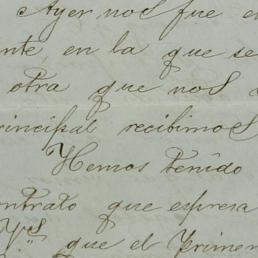 Ayer nos fue e
ente, en la que se
otra que nos
rincipal recibimos
Hemos tenido
ontrato que expresa
que el Primer